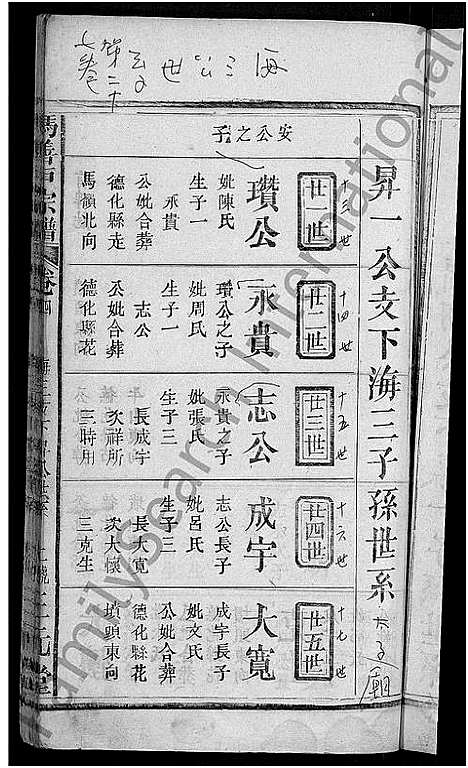 海三公
世
云
第二十
七卷
昇一公支下海三子孫世系
安公之子
十三世
廿一世
瓚公
妣陳氏
生子一
永貴
公妣合葬
德化縣走
馬嶺北向
十四世
廿二世
永貴
瓚公之子
妣周氏
生子一
志公
公妣合葬
德化縣花
十五世
廿三世
志公
永貴之子
妣張氏
生子三
長成宇
次祥所
三時用
十六世
廿四世
成宇
志公長子
妣呂氏
生子三
長大寬
次大懷
三克生
十七世
廿五世
大寬
成宇長子
妣文氏
公妣合葬
德化縣花
墳頭東向
宗譜
卷四
FamilySearch International